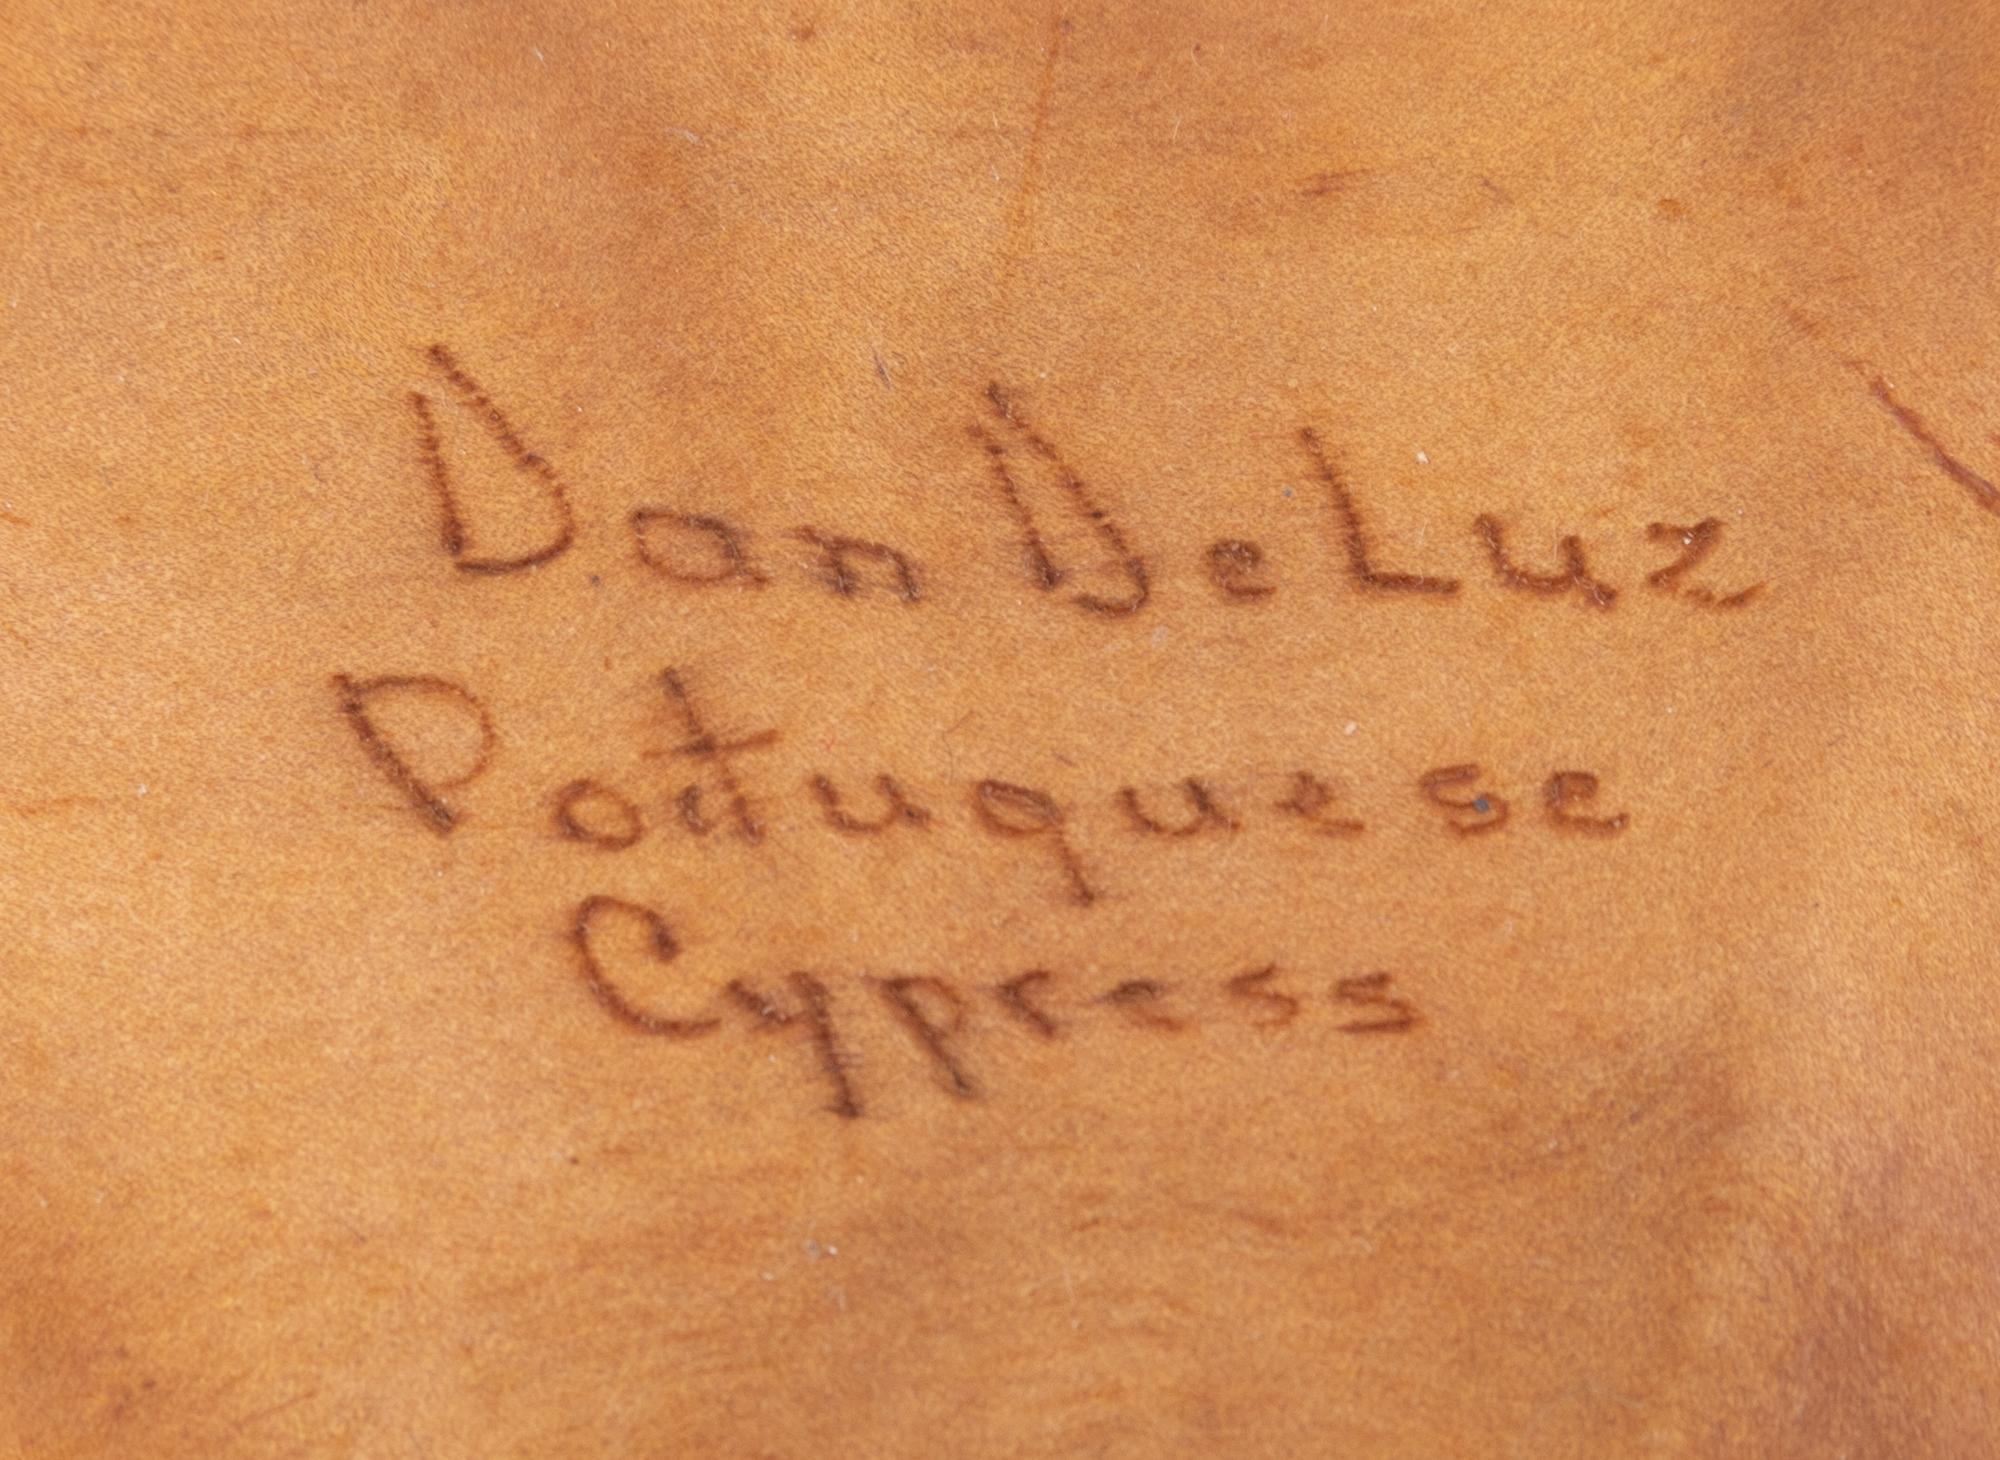 Dan DeLuz
Potuquese
Cypress